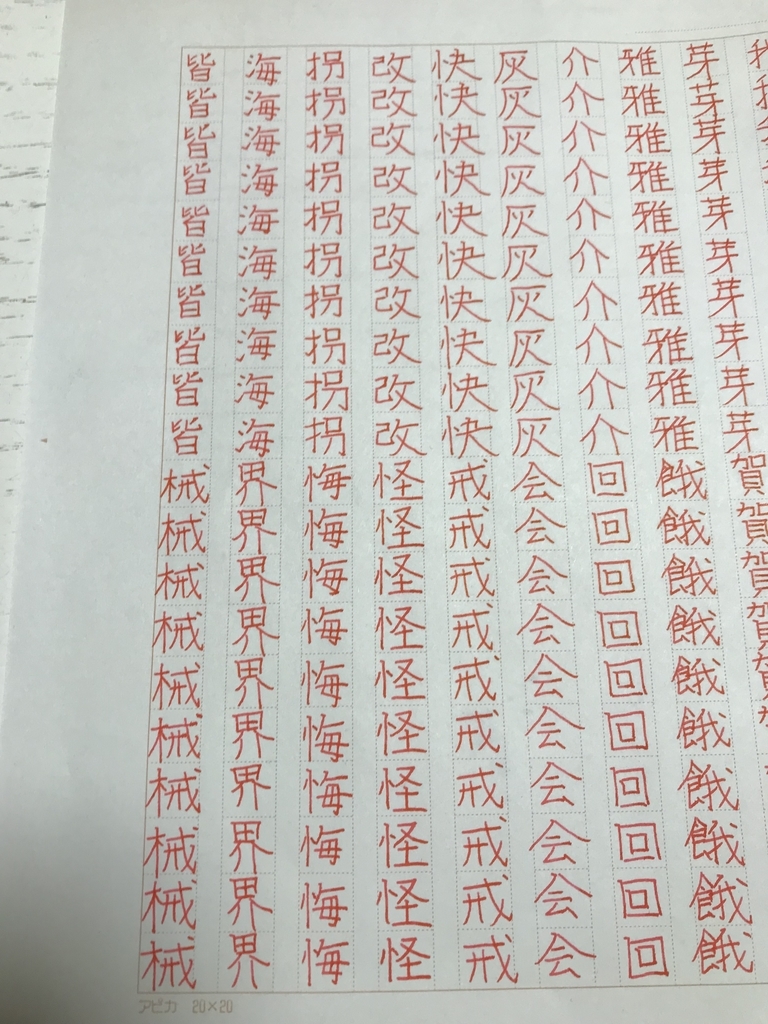 芽芽芽芽芽芽芽芽芽芽賀賀賀賀賀
雅雅雅雅雅雅雅雅雅雅餓餓餓餓餓餓餓餓餓餓
介介介介介介介介介介回回回回回回回回回回
灰灰灰灰灰灰灰灰灰灰会会会会会会会会会会
快快快快快快快快快快戒戒戒戒戒戒戒戒戒戒
改改改改改改改改改改怪怪怪怪怪怪怪怪怪怪
拐拐拐拐拐拐拐拐拐拐悔悔悔悔悔悔悔悔悔悔
海海海海海海海海海海界界界界界界界界界界
皆皆皆皆皆皆皆皆皆皆械械械械械械械械械械
アピカ 20×20